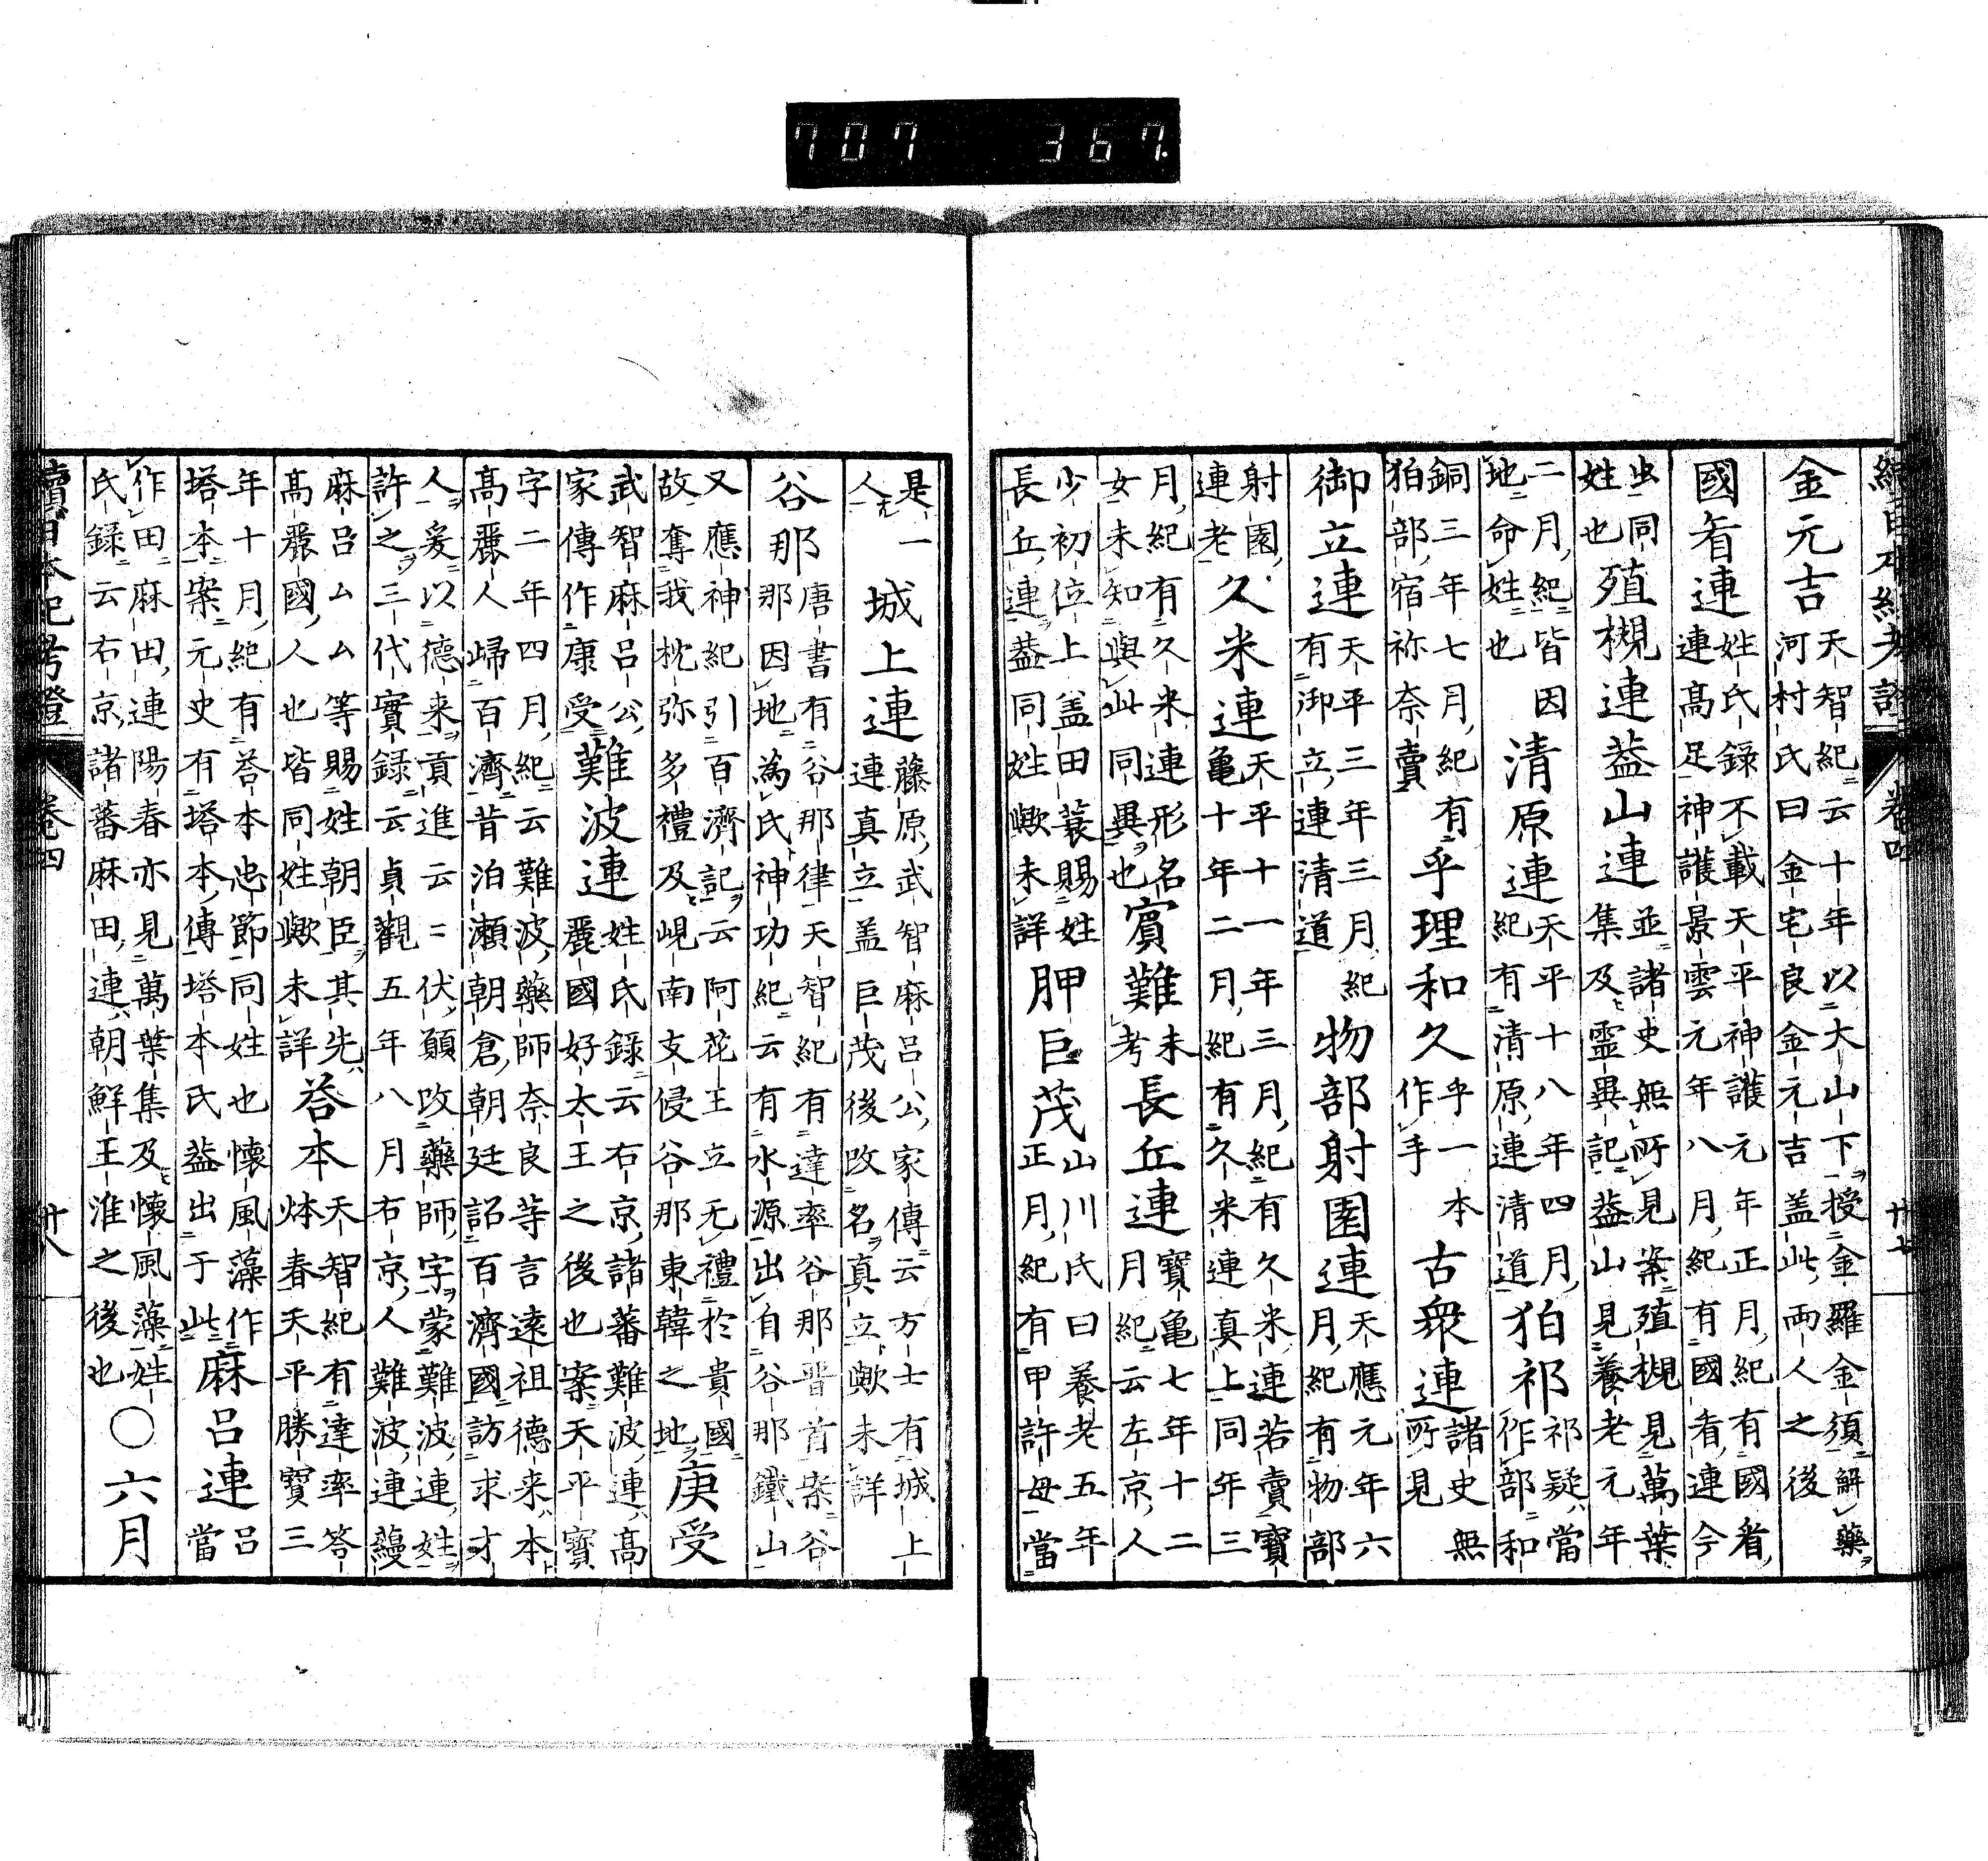 707 367.
續日本紀考證 卷四 廿七
金元吉 天智紀云十年以大山下授金羅金須解藥
河村氏曰金宅良金元吉盖此兩人之後
國看連 姓氏錄不載天平神護元年正月紀有國看
連高足神護景雲元年八月紀有國看連今
虫同
姓也 殖槻連 益山連 並諸史無所見案殖槻見萬葉
集及靈異記益山見養老元年
二月紀皆因
地命姓也 清原連 天平十八年四月
紀有清原連清道 狛祁 祁疑當
作部和
銅三年七月紀有
狛部宿祢奈賣 乎理和久 乎一本
作手 古衆連 諸史無
所見
御立連 天平三年三月紀
有御立連清道 物部射園連 天應元年六
月紀有物部
射園
連老 久米連 天平十一年三月紀有久米連若賣寶
龜十年二月紀有久米連真上同年三
月紀有久米連形名
女未知與此同異也 賓難 未
考 長丘連 寶龜七年十二
月紀云左京人
少初位上盖田蓑賜姓
長丘連盖同姓歟未詳 胛巨茂 山川氏曰養老五年
正月紀有甲許母當
是一
人 城上連 藤原武智麻呂公家傳云方士有城上
連真立盖巨茂後改名真立歟未詳
谷那 唐書有谷那律天智紀有達率谷那晋首案谷
那因地為氏神功紀云有水源出自谷那鐵山
又應神紀引百濟記云阿花王立无禮於貴國
故奪我枕弥多禮及峴南支侵谷那東韓之地 庚受
武智麻呂公
家傳作康受 難波連 姓氏錄云右京諸蕃難波連高
麗國好太王之後也案天平寶
字二年四月紀云難波藥師奈良等言遠祖德来本
高麗人歸百濟昔泊瀬朝倉朝廷詔百濟國訪求才
人爰以德来貢進云〻伏願改藥師字蒙難波連姓
許之三代實錄云貞觀五年八月右京人難波連縵
麻呂ムム等賜姓朝臣其先
高麗國人也皆同姓歟未詳 荅本 天智紀有達率答
㶱春天平勝寶三
年十月紀有荅本忠節同姓也懷風藻作
塔本案元史有塔本傳塔本氏盖出于此 麻呂連 呂
當
作田麻田連陽春亦見萬葉集及懷風藻姓
氏錄云右京諸蕃麻田連朝鮮王淮之後也 〇六月
續日本紀考證 卷四 廿八